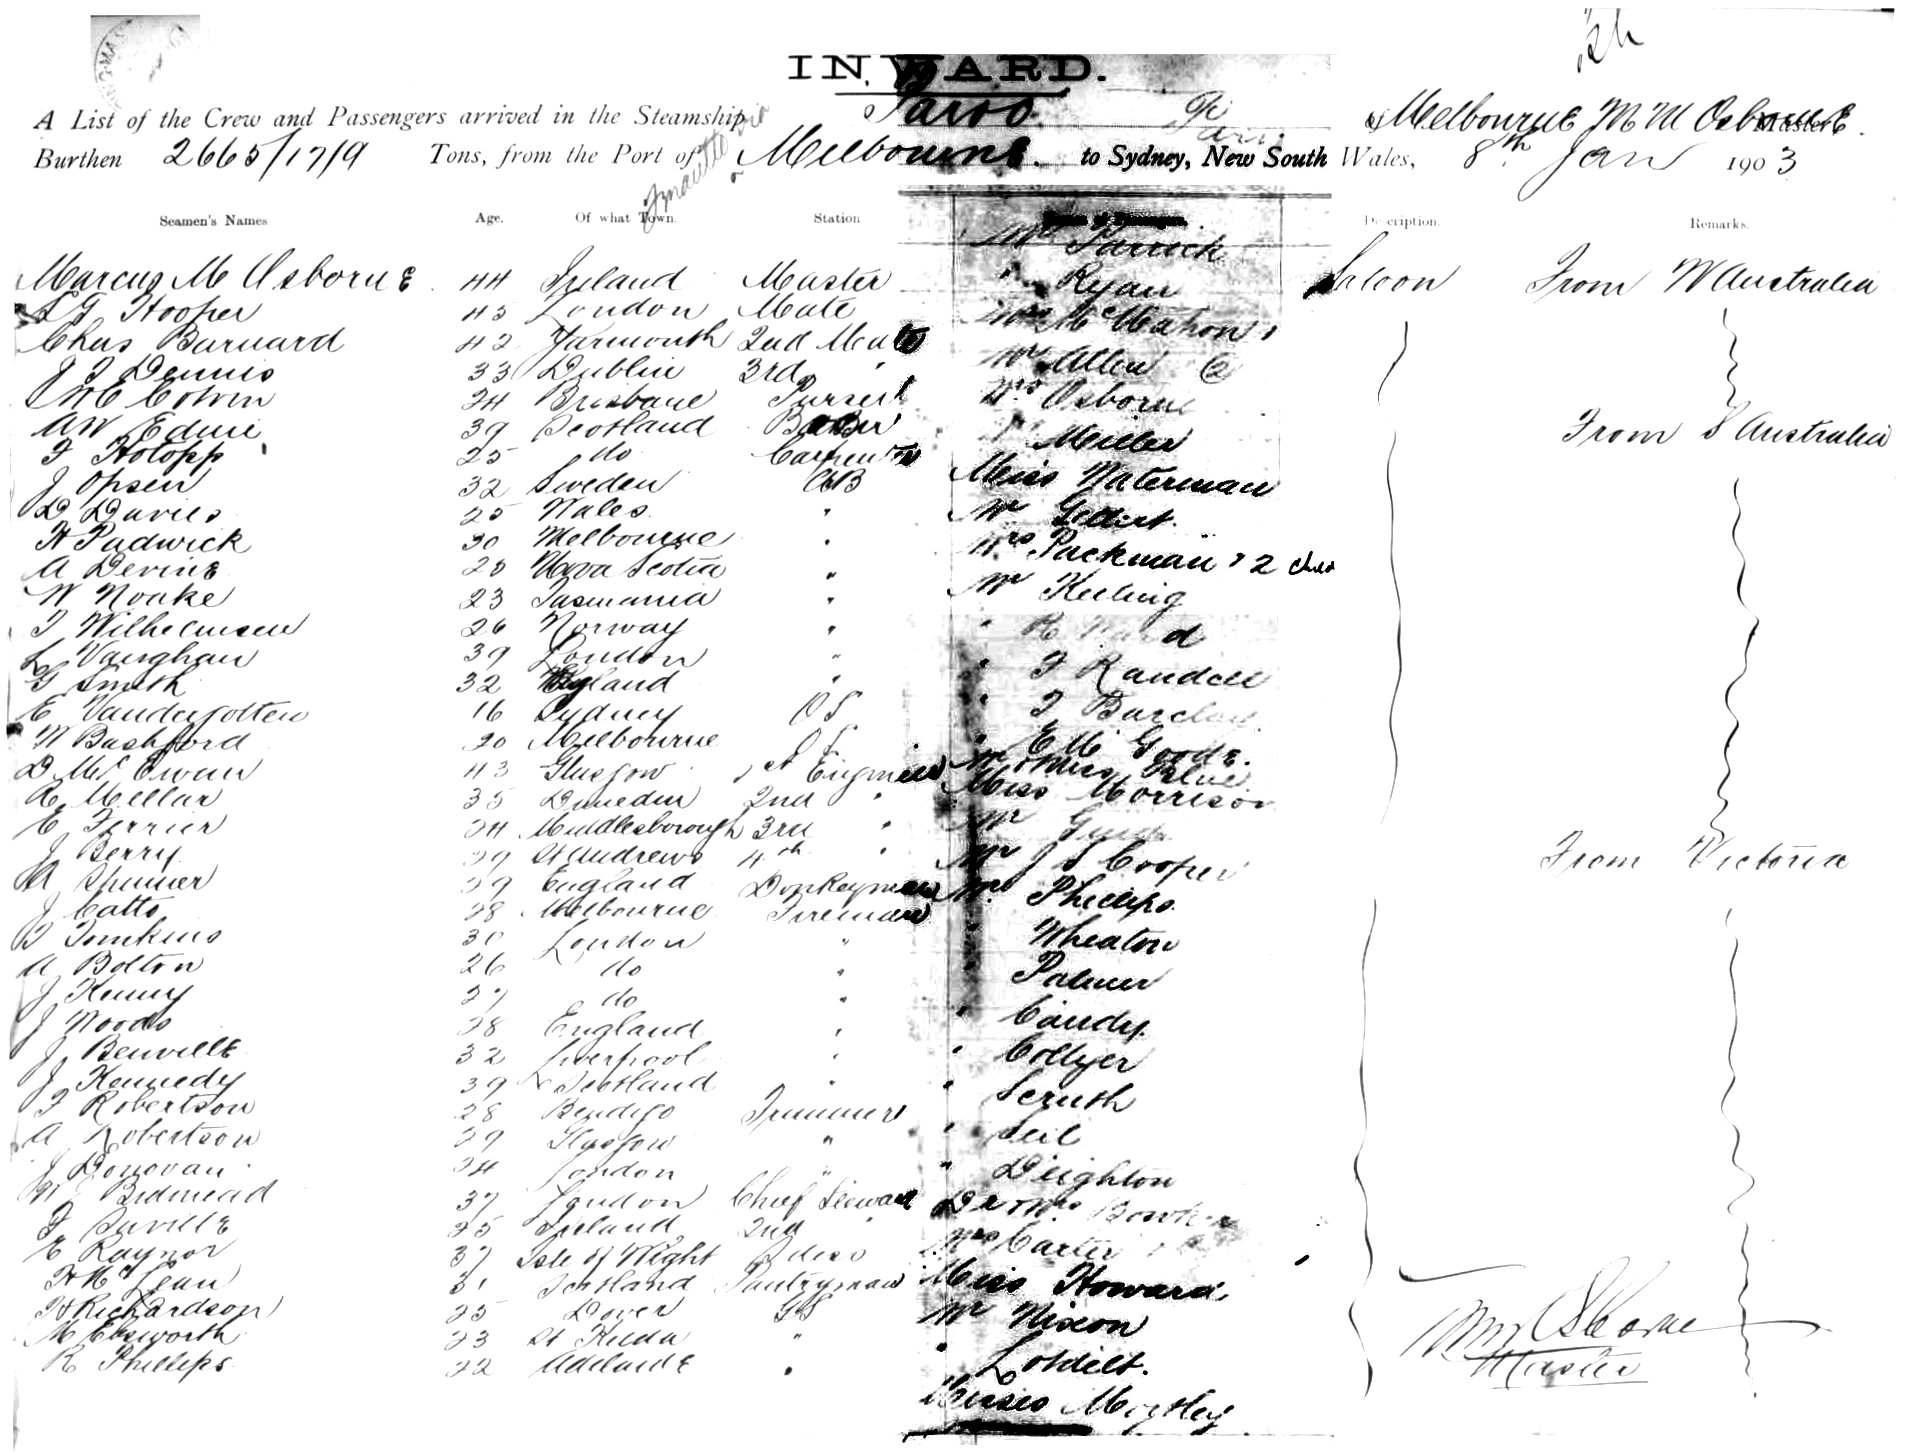 INWARD.
A List of the Crew and Passengers arrived in the Steamship Paroo of Melbourne M M Osborne Master
Burthen 2665/17/9 Tons, from the Port of Melbourne to Sydney, New South Wales, 8th Jan 1903
Seamen's Names Age. Of what Town. Station Description. Remarks.
Mr
Marcus M Osborne 44 Ireland Master " Ryan Saloon From W Australia
L G Hooper 45 London Mate Mrs McMahon
Chas Barnard 42 Yarmouth 2nd Mate Mr Allen (2)
J J Dennis 33 Dublin 3rd " Mrs Osborne
W E Colvin 24 Brisbane Purser
A W Edmie 39 Scotland " Miller From S Australia
F Holopp 25 do Carpenter
J Opsen 32 Sweden AB Miss Waterman
D Davies 25 Wales " Mr Gilbert.
H Padwick 30 Melbourne " Mrs Packman & 2 chdn
A Devine 28 Nova Scotia "
W Noake 23 Tasmania " Mr Keeling
J Wilhelmsen 26 Norway " " R Ward
L Vaughan 39 London " " F Randell
G Smith 32 England " " J Barclay
E Vandergolten 16 Sydney OS " E W Goode.
W Bashford 20 Melbourne OS Mr & Miss
D McEwan 43 Glasgow 1st Engineer Miss Morrison
A Mellar 35 Dunedin 2nd " Mr
E Ferrier 24 Middlesborough 3rd "
J Berry 29 St Andrews 4th " Mr J S Cooper From Victoria
A Spinner 29 England Donkeyman Mr. Phillips
J Catto 28 Melbourne Fireman
T Tomkins 30 London " " Wheaton
A Bolton 26 do " " Palmer
J Kenny 27 do "
J Woods 28 England " " Candy.
J Benville 32 Liverpool " " Collyer
J Kennedy 39 Scotland " " Scruth
J Robertson 28 Bendigo Trimmer
A Robertson 29 Glasgow " " Seil
J Donovan 24 London " " Deighton
W J Bidmead 37 London Chief Steward Dr & Mrs Bowker
F Saville 25 Ireland 2nd " Mrs Carter
E Raynor 37 Isle of Wight
H McLean 31 Scotland Pantryman Miss Howard,
H Richardson 25 Dover GS Mr Nixon
M Ebsworth 23 St Kilda "
R Phillips 22 Adelaide "
Misses
M M Osborne
Master